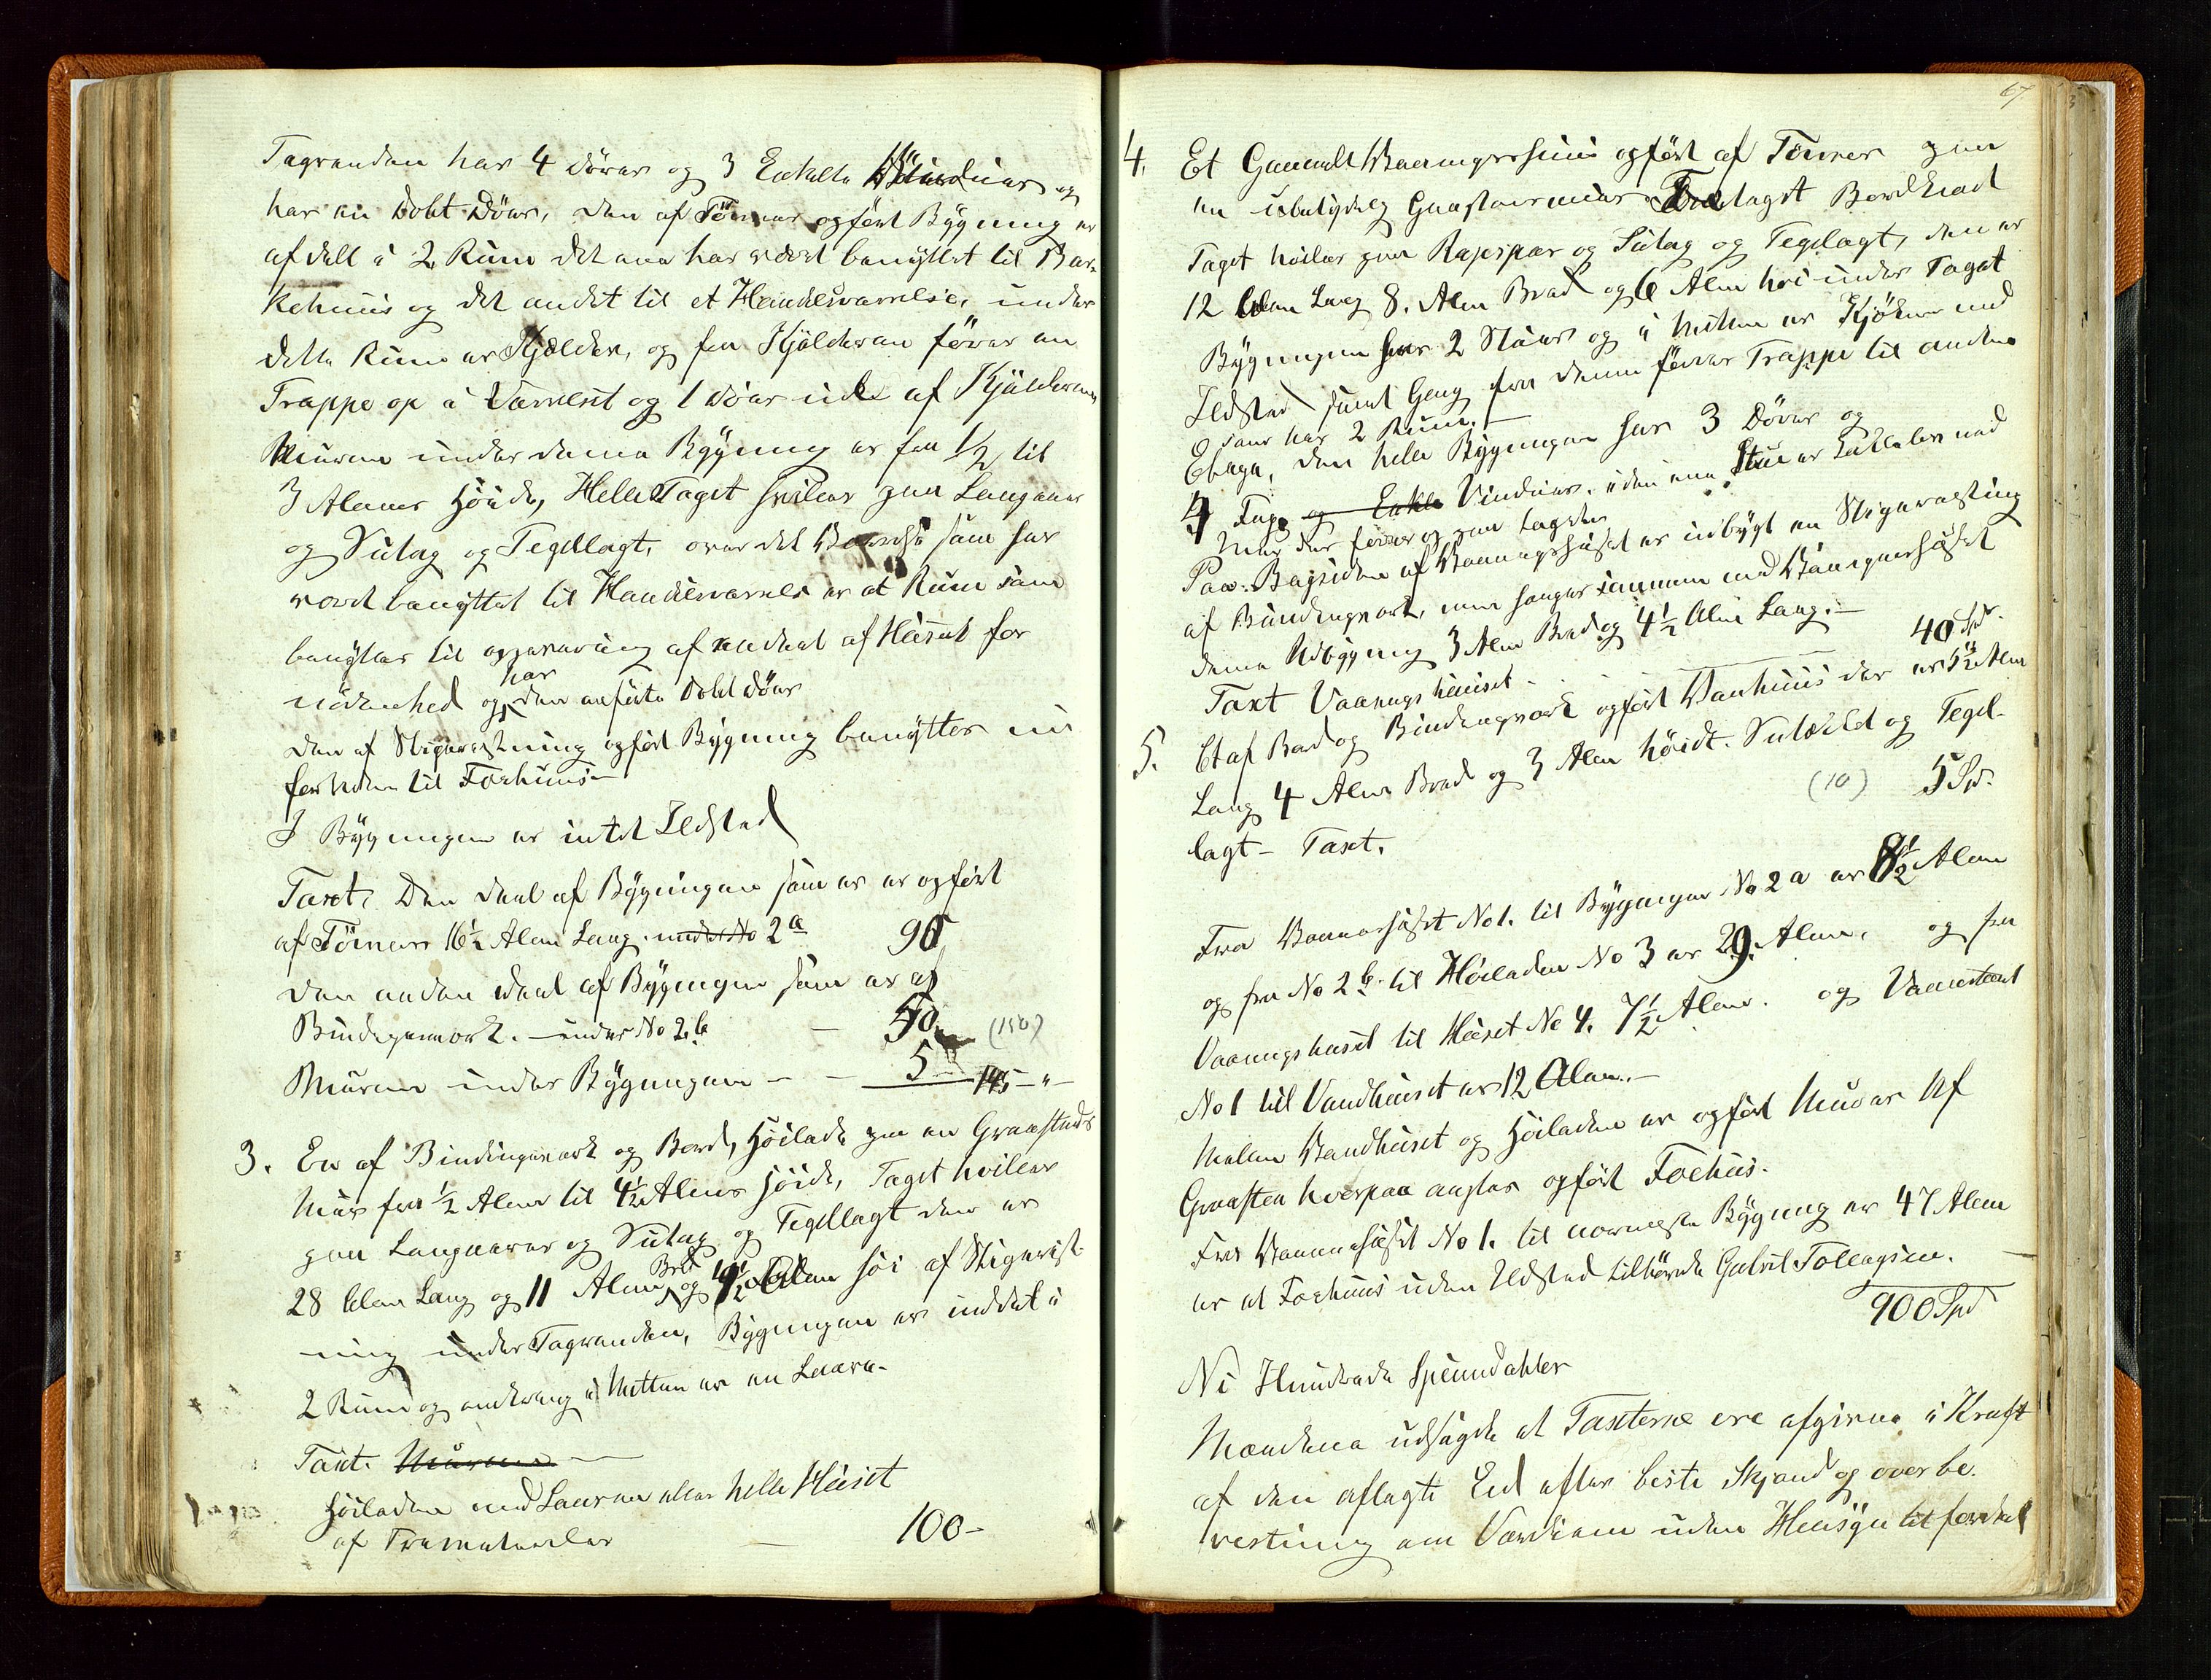 Tagranden har 4 Dörer og 3 Enkelte Vinduer og
har en Dobt Döer, den af Tömer opfört Bÿgning er
afdelt i 2 Rum det ene har været benÿttet til Bar-
kehuus og det andet til et Handelsværrelse, under
dette Rum er Kjelder, og fra Kjölderen förer en
Trappe op i Værrelset og 1 Döer ud af Kjælderen
Muuren under denne Bÿgning er fra 1/2 til
3 Alens Höide, Hele Taget hviler paa Langaaser
og Sutag og Tegellagt, over det Værrelse som har
været benÿttet til Handelsværrels er et Rum som
benÿttes til opbevaring af
nödenhed og har den anförte Dobt döer
Den af Stigerestning opfört Bÿgning benÿttes nu
for tiden til Foehuus-
I Bÿgningen er intet Ildsted
Taxt, Den deel af Bÿgningen som er er opfört
af Tömer 16 1/2 Alen Lang. under No 2 a 90
Den anden Deel af Bÿgningen som er af
Bindingsverk. - under No 2. b - 50 (150)
Muuren under Bÿgningen - - 5 145 - " -
3. En af Bindingsverk og Bord, Höilade paa en Graasteens
Muur fra 1/2 Alen til 4 1/2 Alens höide, Taget hviler
paa Langaaser og Sutag og Tegellagt den er
28 Alen Lang og 11 Alen Bred og 4 1/2 Alen höi af Stigerist-
ning under Tagranden, Bÿgningen er inddelt i
2 Rum og i Mitten er en Laave-
Taxt. Muuren -
Höiladen med Laaven eller hele Huuset
af Træmaterialer - 100 -
67
4. Et Gammelt Vaaningshuus opfört af Tömer paa
en ubetydelig Graasteensmuur Bordklæd
Taget hviler paa Rajspær og Sutag og Tegllagt, den er
12 Alen Lang 8. Alen Bred og 6 Alen höi under Taget
Bÿgningen har 2 Stuer og i Mitten er Kjöken med
Ildsted samt Gang fra denne förer Trappe til anden
Etage, som har 2 Rum. -
den hele Bÿgningen har 3 Dörer og
4 Fag og Enkle Vinduer. i den ene Stue er Kakelovn med
Paa Bagsiden af Vaaningshuset er udbÿgt en Stigeresting
af Bindingverk, men henger sammen med Vaaningshuset
denne Udbÿgning 3 Alen Bred og 4 1/2 Alen Lang. -
Taxt Vaaningshuuset - 40 Spd.
5. Et af Bord og Bindingverk opfört Vandhuus der er 5 1/2 Alen
Lang 4 Alen Bred og 3 Alen höidt. Sutækt og Tegel-
lagt - Taxt. (10) 5 Spd.
Fra Vaaneshuset No 1. til Bÿgningen No 2 a er 8 1/2 Alen
og fra No 2 b. til Höiladen No 3 er 29. Alen, og fra
Vaaningshuset til Huset No 4. 7 1/2 Alen. og Vaaneshuset
No 1 til Vandhuuset er 12 Alen. -
Mellem Vandhuset og Höiladen er opfört Muur af
Graasten hvorpaa agtes opfört Foehus.
Fra Vaanehuset No 1. til nærmeste Bÿgning er 47 Alen
er et Foehuus uden Ildsted tilhörende Gabril Tollagsen. -
900 Spd
Ni Hundrede Speciedahler
Mændene udsagde at Taxterne ere afgivne i Kraft
af den aflagte Eed efter beste Skjönd og overbe-
visning om Værdien uden Hensyn til fordeel